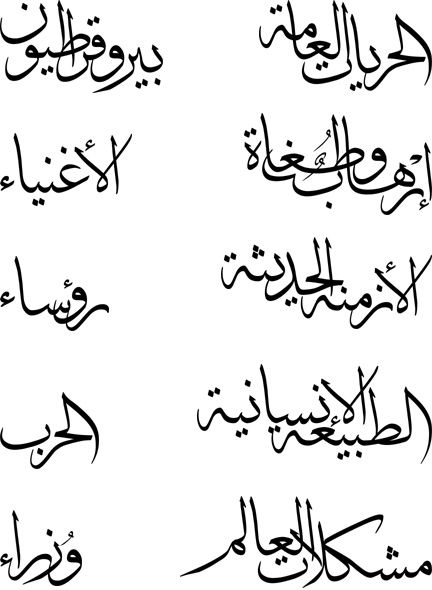 الحريات العامة
بيروقراطيون
إرهاب وطغاة
الأغنياء
الأزمنة الحديثة
رؤساء
الطبيعة الإنسانية
الحرب
مشكلات العالم
وُزراء